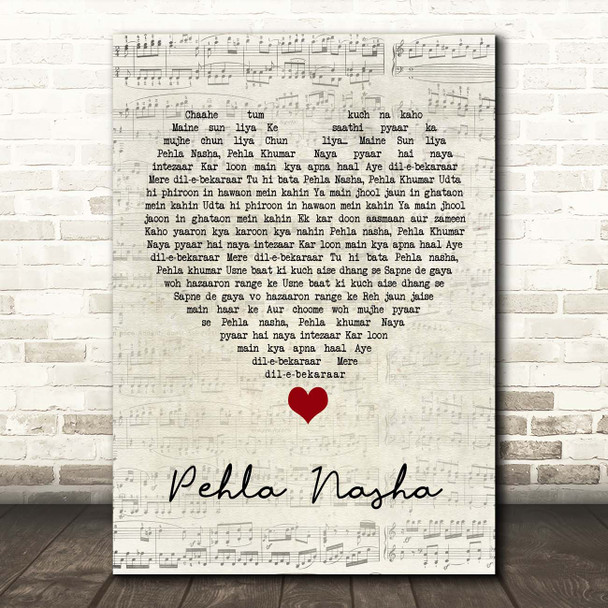 Chaahe tum kuch na kaho
Maine sun liya Ke saathi pyaar ka
mujhe chun liya Chun liya… Maine Sun liya
Pehla Nasha, Pehla Khumar Naya pyaar hai naya
intezaar Kar loon main kya apna haal Aye dil-e-bekaraar
Mere dil-e-bekaraar Tu hi bata Pehla Nasha, Pehla Khumar Udta
hi phiroon in hawaon mein kahin Ya main jhool jaun in ghataon
mein kahin Udta hi phiroon in hawaon mein kahin Ya main jhool
jaoon in ghataon mein kahin Ek kar doon aasmaan aur zameen
Kaho yaaron kya karoon kya nahin Pehla nasha, Pehla Khumar
Naya pyaar hai naya intezaar Kar loon main kya apna haal Aye
dil-e-bekaraar Mere dil-e-bekaraar Tu hi bata Pehla nasha,
Pehla khumar Usne baat ki kuch aise dhang se Sapne de gaya
woh hazaaron range ke Usne baat ki kuch aise dhang se
Sapne de gaya vo hazaaron range ke Reh jaun jaise
main haar ke Aur choome woh mujhe pyaar
se Pehla nasha, Pehla khumar Naya
pyaar hai naya intezaar Kar loon
main kya apna haal Aye
dil-e-bekaraar Mere
dil-e-bekaraar
Pehla Nasha